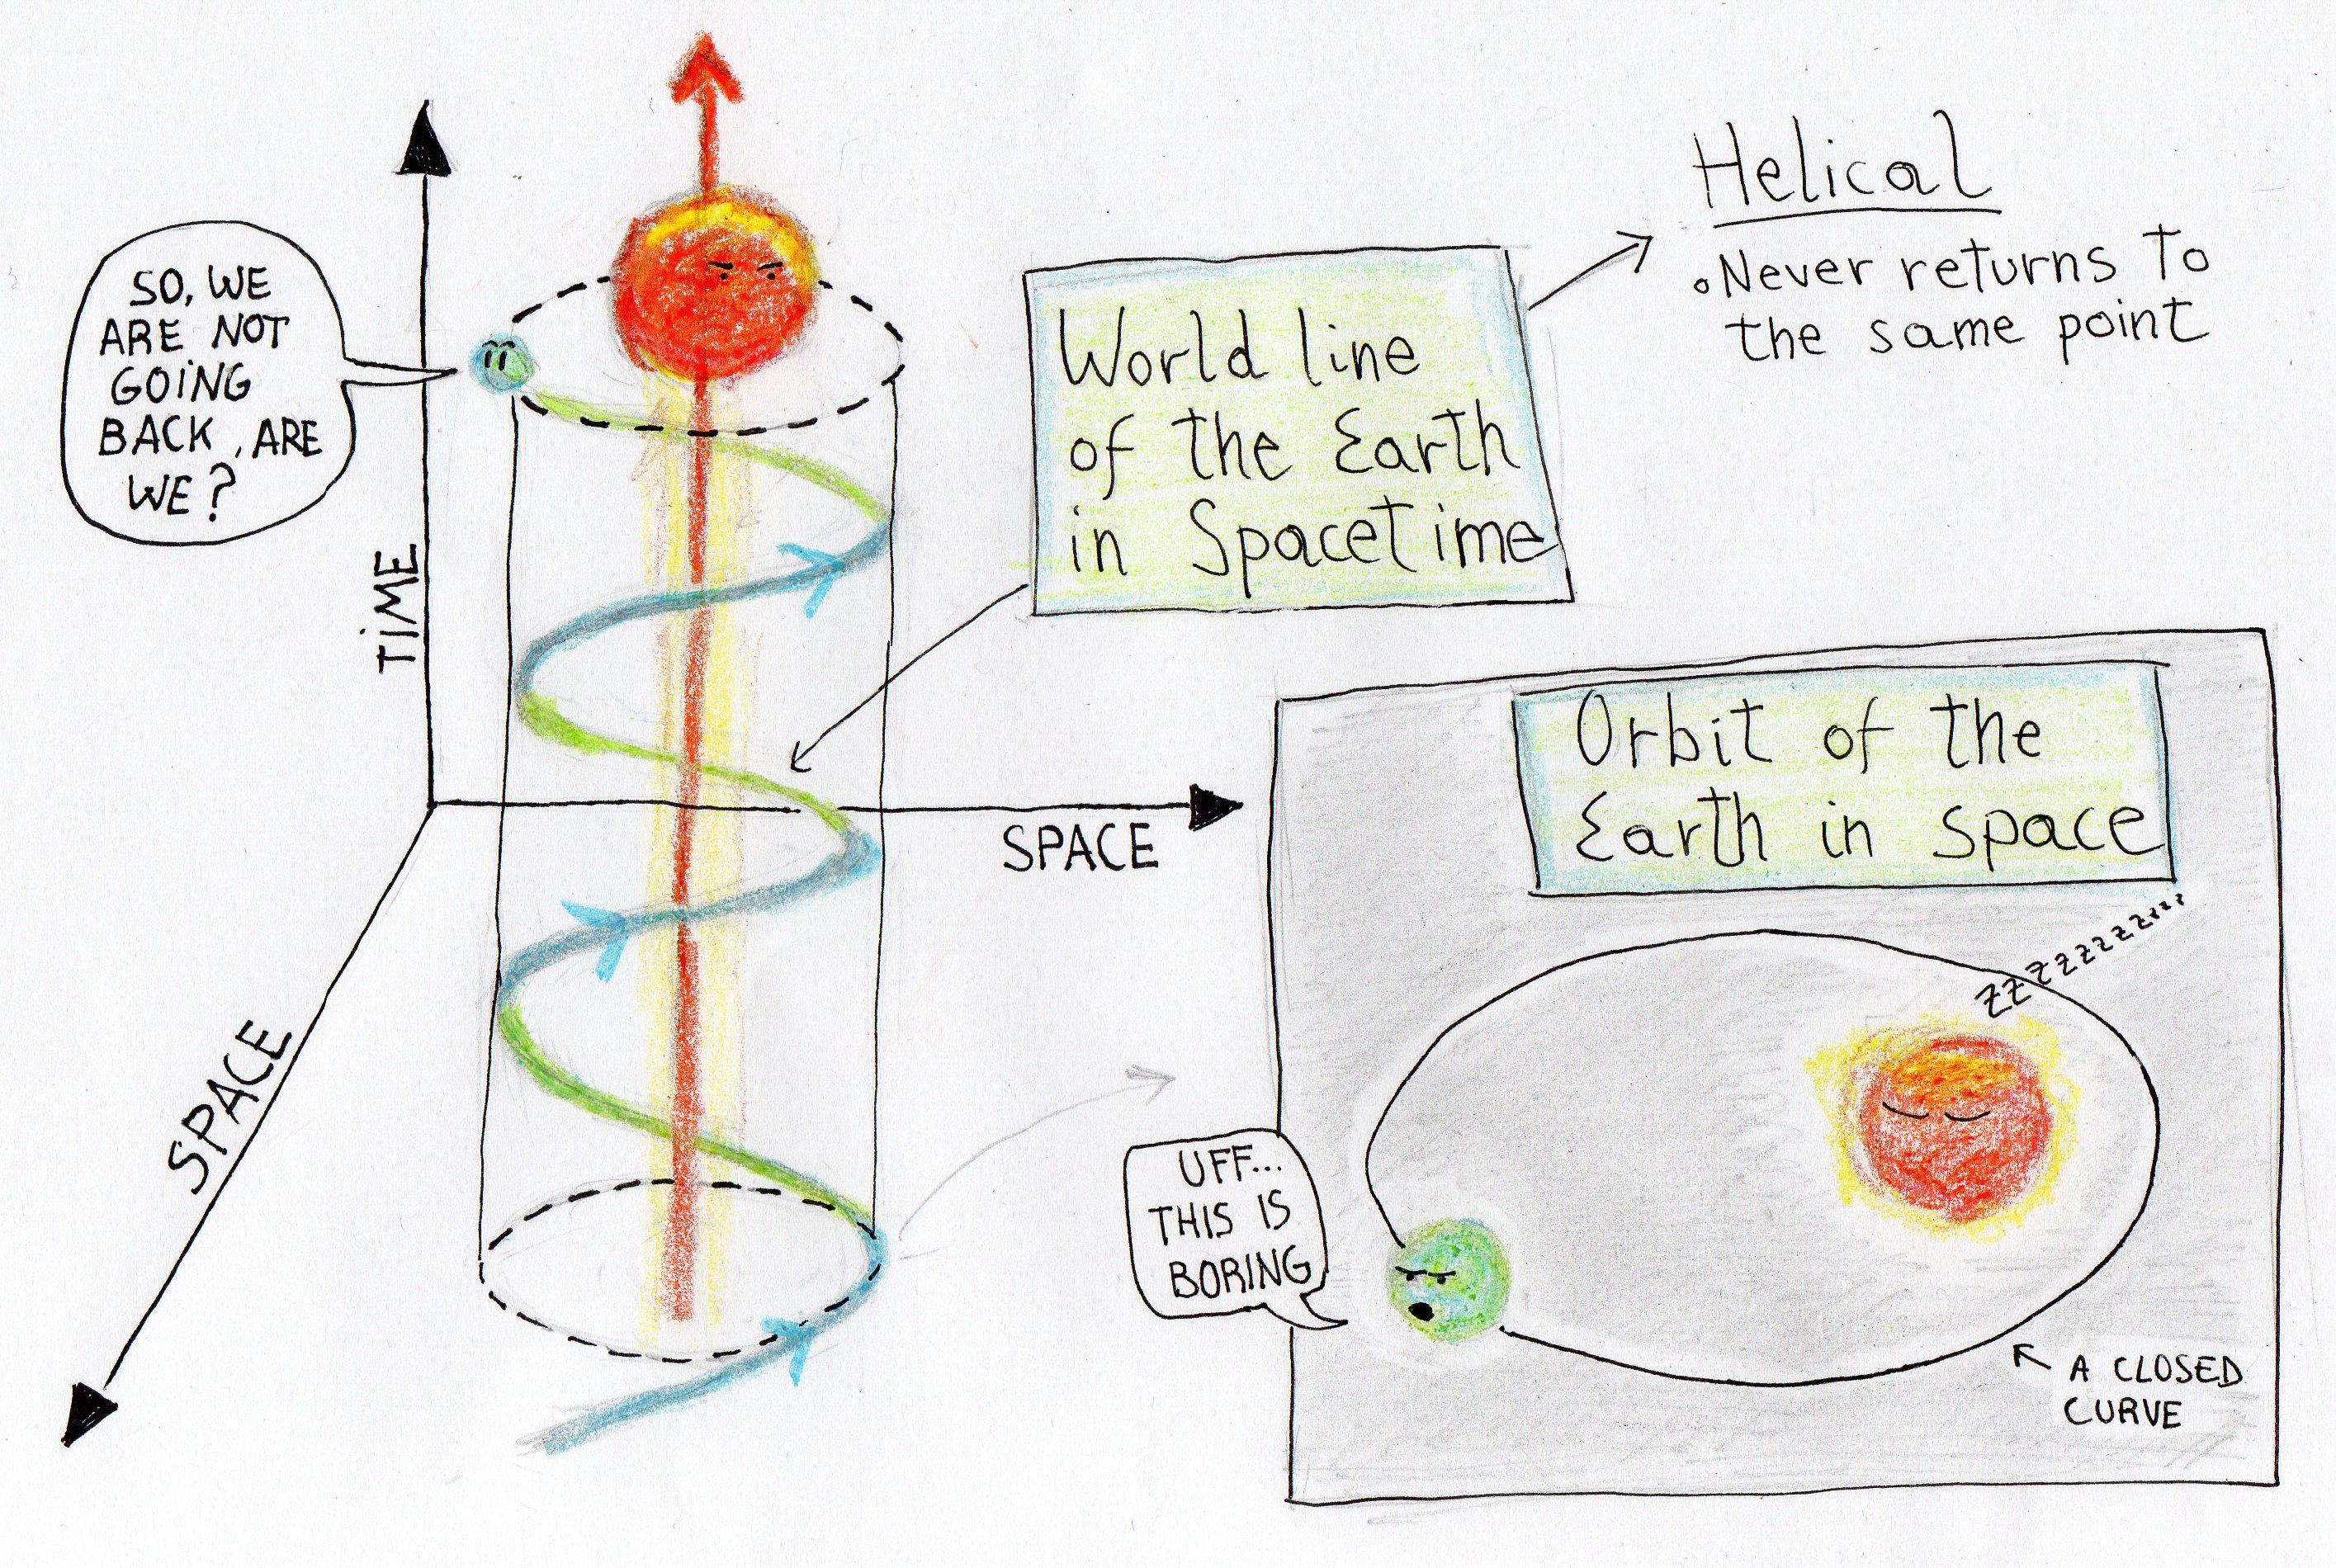 SO, WE
ARE NOT
GOING
BACK, ARE
WE?
TIME
SPACE
SPACE
World line
of the Earth
in Spacetime
Helical
• Never returns to
the same point
Orbit of the
Earth in space
zzzzzzzzz...
UFF...
THIS IS
BORING
A CLOSED
CURVE